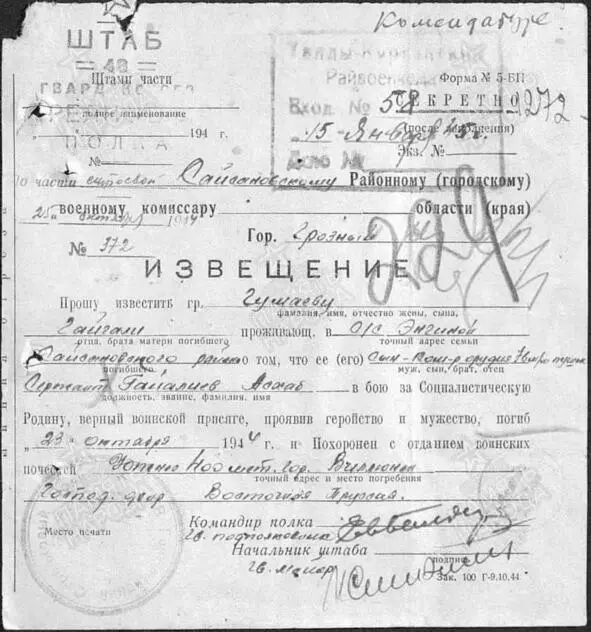 Комендатуре.
ШТАБ
= 48 =
Штамп части
ГВАРД
Райвоенком
Форма № 5-БП
Вход. № 58
СЕКРЕТНО
1272
полное наименование
(после заполнения)
" " 194 г.
15 Января 45г.
ПОЛКА
Экз. №
№
Дело №
По части Сайсановскому Районному (городскому)
военному комиссару области (края)
25 октября 1944
229
№ 372
Гор. Грозный
ИЗВЕЩЕНИЕ
Прошу известить гр. Гумаеву
фамилия, имя, отчество жены, сына,
Гайгали проживающ. в О/С Энгиной
отца, брата матери погибшего
точный адрес семьи
Сайсановского района о том, что ее (его) сын - ком-р орудия
погибшего
муж, сын, брат, отец
Сержант Гайалиев Асхаб в бою за Социалистическую
должность, звание, фамилия, имя
Родину, верный воинской присяге, проявив геройство и мужество, погиб
" 23 " октября 1944 г. и Похоронен с отданием воинских
почестей Южнее 400 мет. гор. Виллюнен
точный адрес и место погребения
Господ. двор Восточная Пруссия.
Командир полка
Гв. подполковник
Место печати
Начальник штаба
подпись
Гв. майор
Зак. 100 Г-9.10.44